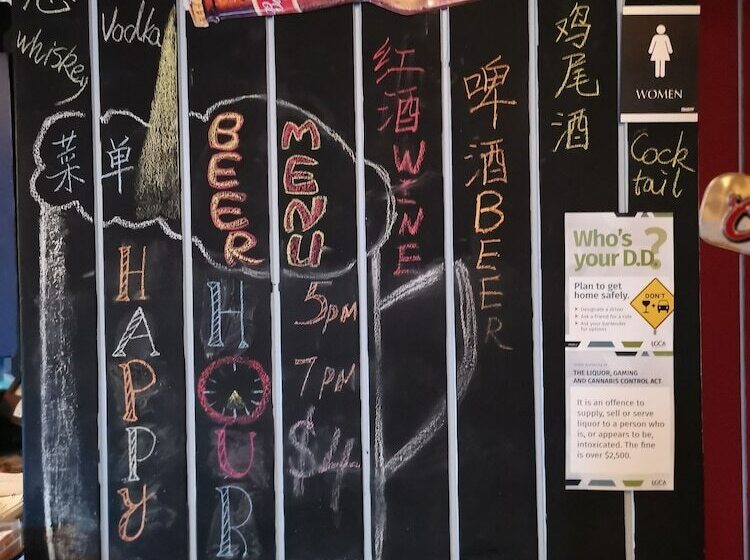 whiskey
Vodka
菜单
BEER
MENU
HAPPY
HOUR
5pm
7pm
$4
红酒WINE
啤酒BEER
鸡尾酒
Cock
tail
WOMEN
Who's
your D.D.?
Plan to get
home safely.
Designate a driver
Ask a friend for a ride
Ask your bartender
for options
DON'T
LGCA
THE LIQUOR, GAMING
AND CANNABIS CONTROL ACT
It is an offence to
supply, sell or serve
liquor to a person who
is, or appears to be,
intoxicated. The fine
is over $2,500.
LGCA